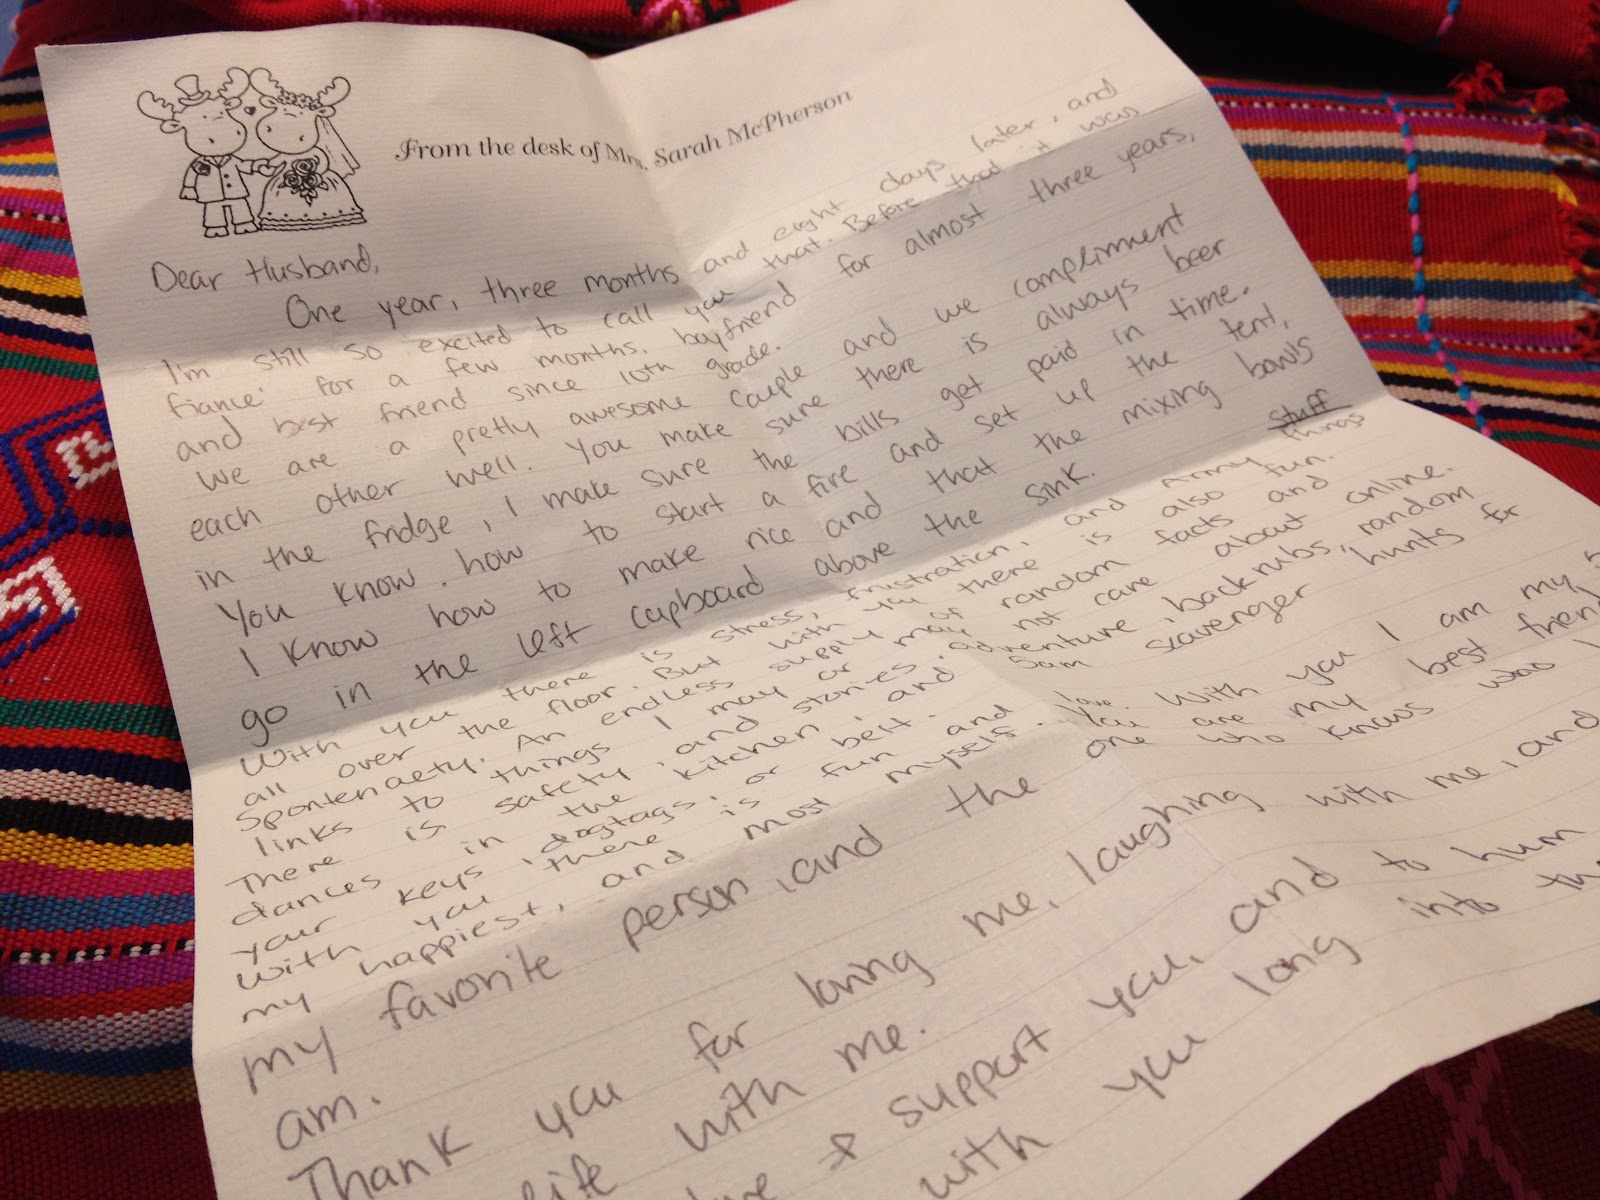 From the desk of Mrs. Sarah McPherson
Dear Husband,
One year, three months and eight days later, and
I'm still so excited to call you that. Before that it was
fiance' for a few months, boyfriend for almost three years,
and best friend since 10th grade.
We are a pretty awesome couple and we compliment
each other well. You make sure there is always beer
in the fridge, I make sure the bills get paid in time.
You know how to start a fire and set up the tent,
I know how to make rice and that the mixing bowls
go in the left cupboard above the sink.
With you there is stress, frustration, and Army stuff things
all over the floor. But with you there is also fun.
Spontenaety. An endless supply of random facts and
links to things I may or may not care about online.
There is safety, and stories, adventure, backrubs, random
dances in the kitchen and 5am scavenger hunts for
your keys, dogtags, or belt.
With you there is fun and love. With you I am my
my happiest, and most myself. You are my best friend
my favorite person, and the one who knows who I
am.
Thank you for loving me, laughing with me, and
life with me.
& support you, and to hum
with you long into the